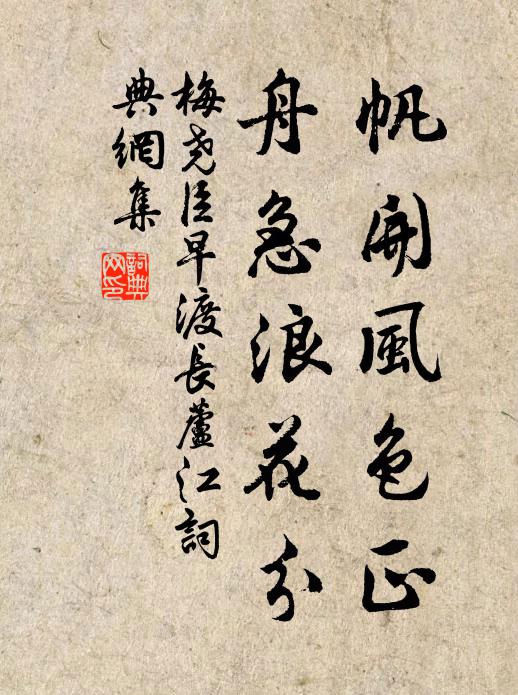 帆開風色正
舟急浪花分
梅堯臣早渡長蘆江詞
典網集
詞典
网印